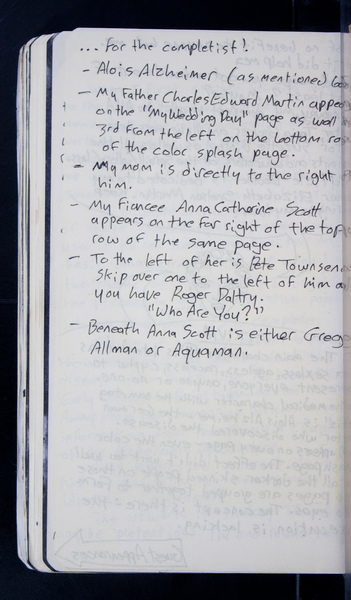 ... For the completist!
- Alois Alzheimer (as mentioned)
- My Father Charles Edward Martin appea
on the "My Wedding Day" page as well
3rd from the left on the bottom ro
of the color splash page.
- My mom is directly to the right
him.
- My fiancee Anna Catherine Scott
appears on the far right of the top
row of the same page.
- To the left of her is Pete Townsen
skip over one to the left of him a
you have Roger Daltry.
"Who Are You?"
- Beneath Anna Scott is either Greg
Allman or Aquaman.